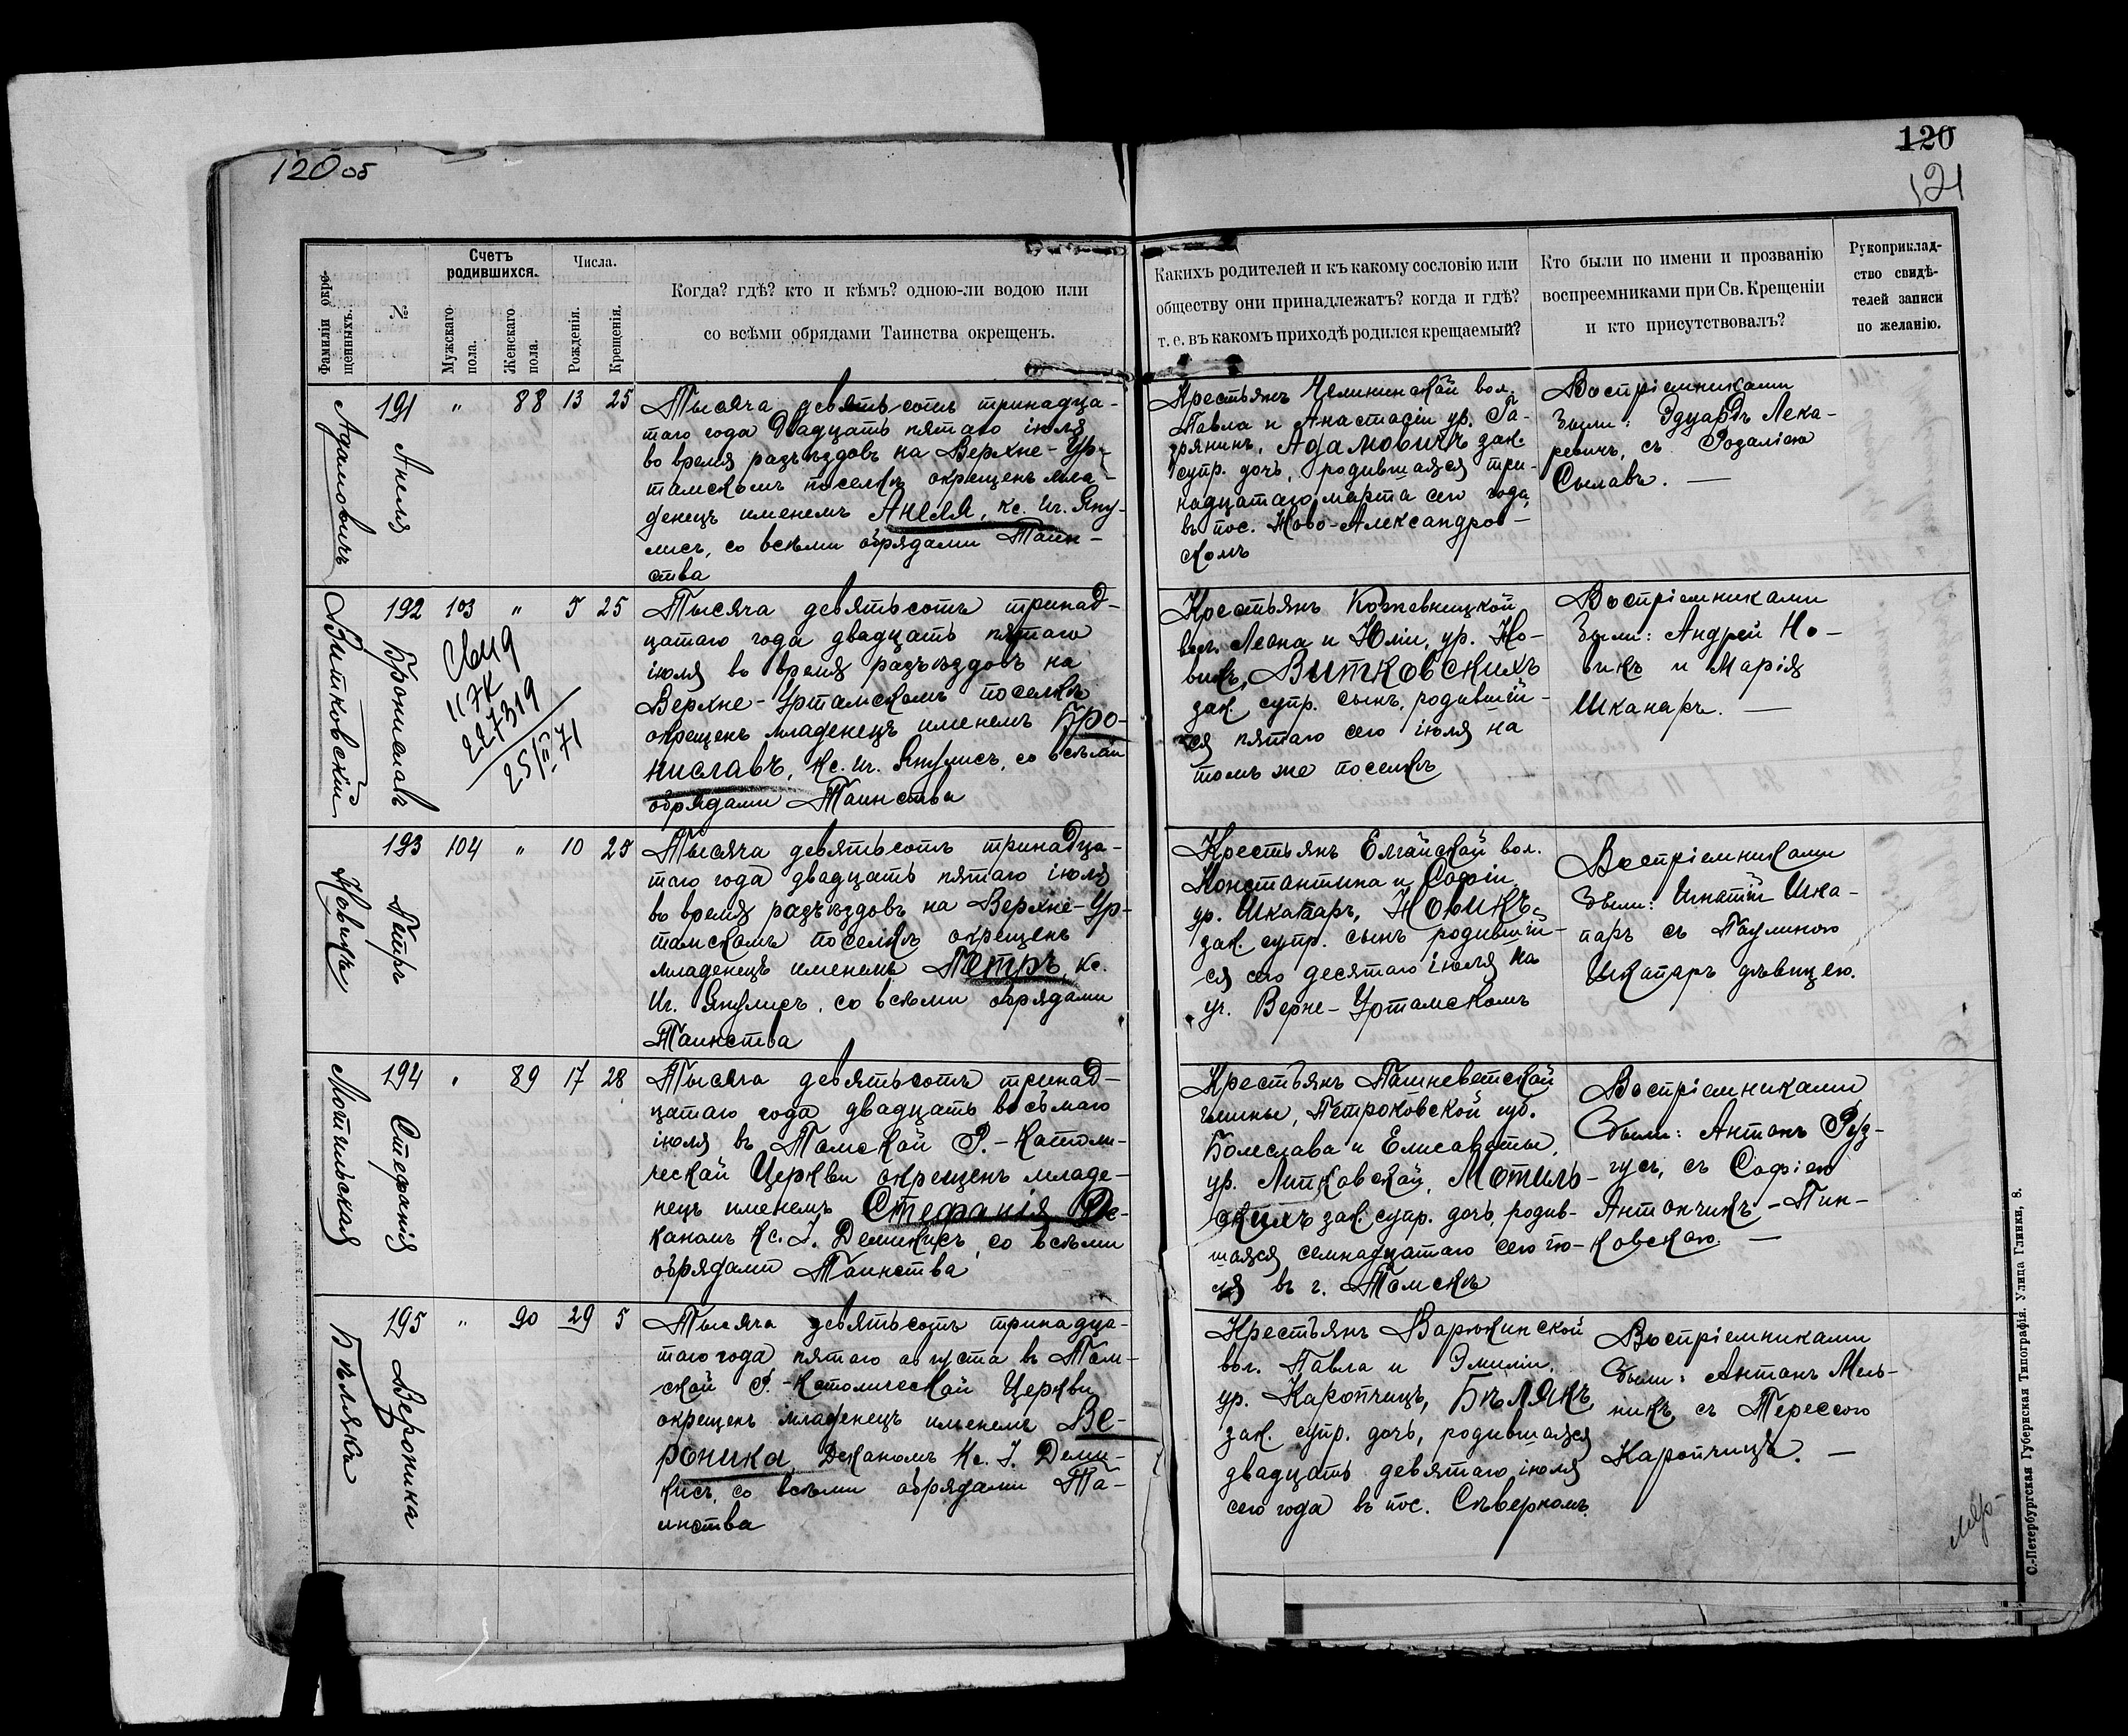 120 об
120
121
Фамиліи окре-
щенныхъ.
№
Счетъ
родившихся.
Мужскаго
пола.
Женскаго
пола.
Числа.
Рожденія.
Крещенія.
Когда? гдѣ? кто и кѣмъ? одною-ли водою или
со всѣми обрядами Таинства окрещенъ.
Какихъ родителей и къ какому сословію или
обществу они принадлежатъ? когда и гдѣ?
т. е. въ какомъ приходѣ родился крещаемый?
Кто были по имени и прозванію
воспреемниками при Св. Крещеніи
и кто присутствовалъ?
Рукоприклад-
ство свидѣ-
телей записи
по желанію.
Адамовичъ
191
Анеля
"
88
13
25
Тысяча девятьсотъ тринадца-
таго года двадцать пятаго іюля
во время разъѣздовъ на Верхне-Ур-
тамскомъ поселкѣ окрещенъ мла-
денецъ именемъ Анеля, кс. Иг. Яну-
лисъ, со всѣми обрядами Таин-
ства
Крестьянъ вол.
Павла и Анастасіи ур. Га-
дрянинъ, Адамовичъ зак.
супр. дочь, родившаяся три-
надцатаго марта сего года,
въ пос. Ново-Александров-
скомъ
Воспріемниками
были: Эдуардъ Лека-
ревичъ, съ Розаліею
Сылавъ. —
Витковскій
192
Брониславъ
103
"
5
25
227319
25/II 71
Тысяча девятьсотъ тринад-
цатаго года двадцать пятаго
іюля во время разъѣздовъ на
Верхне-Уртамскомъ поселкѣ
окрещенъ младенецъ именемъ Бро-
ниславъ, кс. Иг. Янулисъ, со всѣми
обрядами Таинства
Крестьянъ Кожевницкой
вол. Леона и Юліи, ур. Но-
викъ, Витковскихъ
зак. супр. сынъ, родившій-
ся пятаго сего іюля на
томъ же поселкѣ
Воспріемниками
были: Андрей Но-
викъ и Марія
Шкапаръ. —
Новикъ
193
Петръ
104
"
10
25
Тысяча девятьсотъ тринадца-
таго года двадцать пятаго іюля
во время разъѣздовъ на Верхне-Ур-
тамскомъ поселкѣ окрещенъ
младенецъ именемъ Петръ, кс.
Иг. Янулисъ, со всѣми обрядами
Таинства
Крестьянъ Елгайской вол.
Константина и Софіи,
ур. Шкапаръ, Новикъ
зак. супр. сынъ родившій-
ся сего десятаго іюля на
уч. Верне-Уртамскомъ
Воспріемниками
были: Игнатій Шка-
паръ съ Паулиною
Шкапаръ дѣвицею.
Мотыльская
194
Стефанія
"
89
17
28
Тысяча девятьсотъ тринад-
цатаго года двадцать восьмаго
іюля въ Томской Р.-Католи-
ческой Церкви окрещенъ младе-
нецъ именемъ Стефанія Де-
каномъ Кс. І. Демикисъ, со всѣми
обрядами Таинства
Крестьянъ
гмины, Петроковской губ.
Болеслава и Елисаветы,
ур. Литковской, Мотиль-
скихъ зак. супр. дочь, родив-
шаяся семнадцатаго сего ію-
ля въ г. Томскѣ
Воспріемниками
были: Антонъ Руд-
гусъ, съ Софіею
Антончикъ-Пин-
ковскою. —
Бѣлякъ
195
Вероника
"
90
29
5
Тысяча девятьсотъ тринадца-
таго года пятаго августа въ Том-
ской Р.-Католической Церкви
окрещенъ младенецъ именемъ Ве-
роника, Деканомъ Кс. І. Деми-
кисъ, со всѣми обрядами Та-
инства
Крестьянъ Варюхинской
вол. Павла и Эмиліи,
ур. Каропчицъ, Бѣлякъ,
зак. супр. дочь, родившаяся
двадцать девятаго іюля
сего года въ пос. Сѣверномъ.
Воспріемниками
были: Антонъ Мель-
никъ, съ Терессою
Каропчицъ. —
С.-Петербургская Губернская Типографія. Улица Глинки, 8.